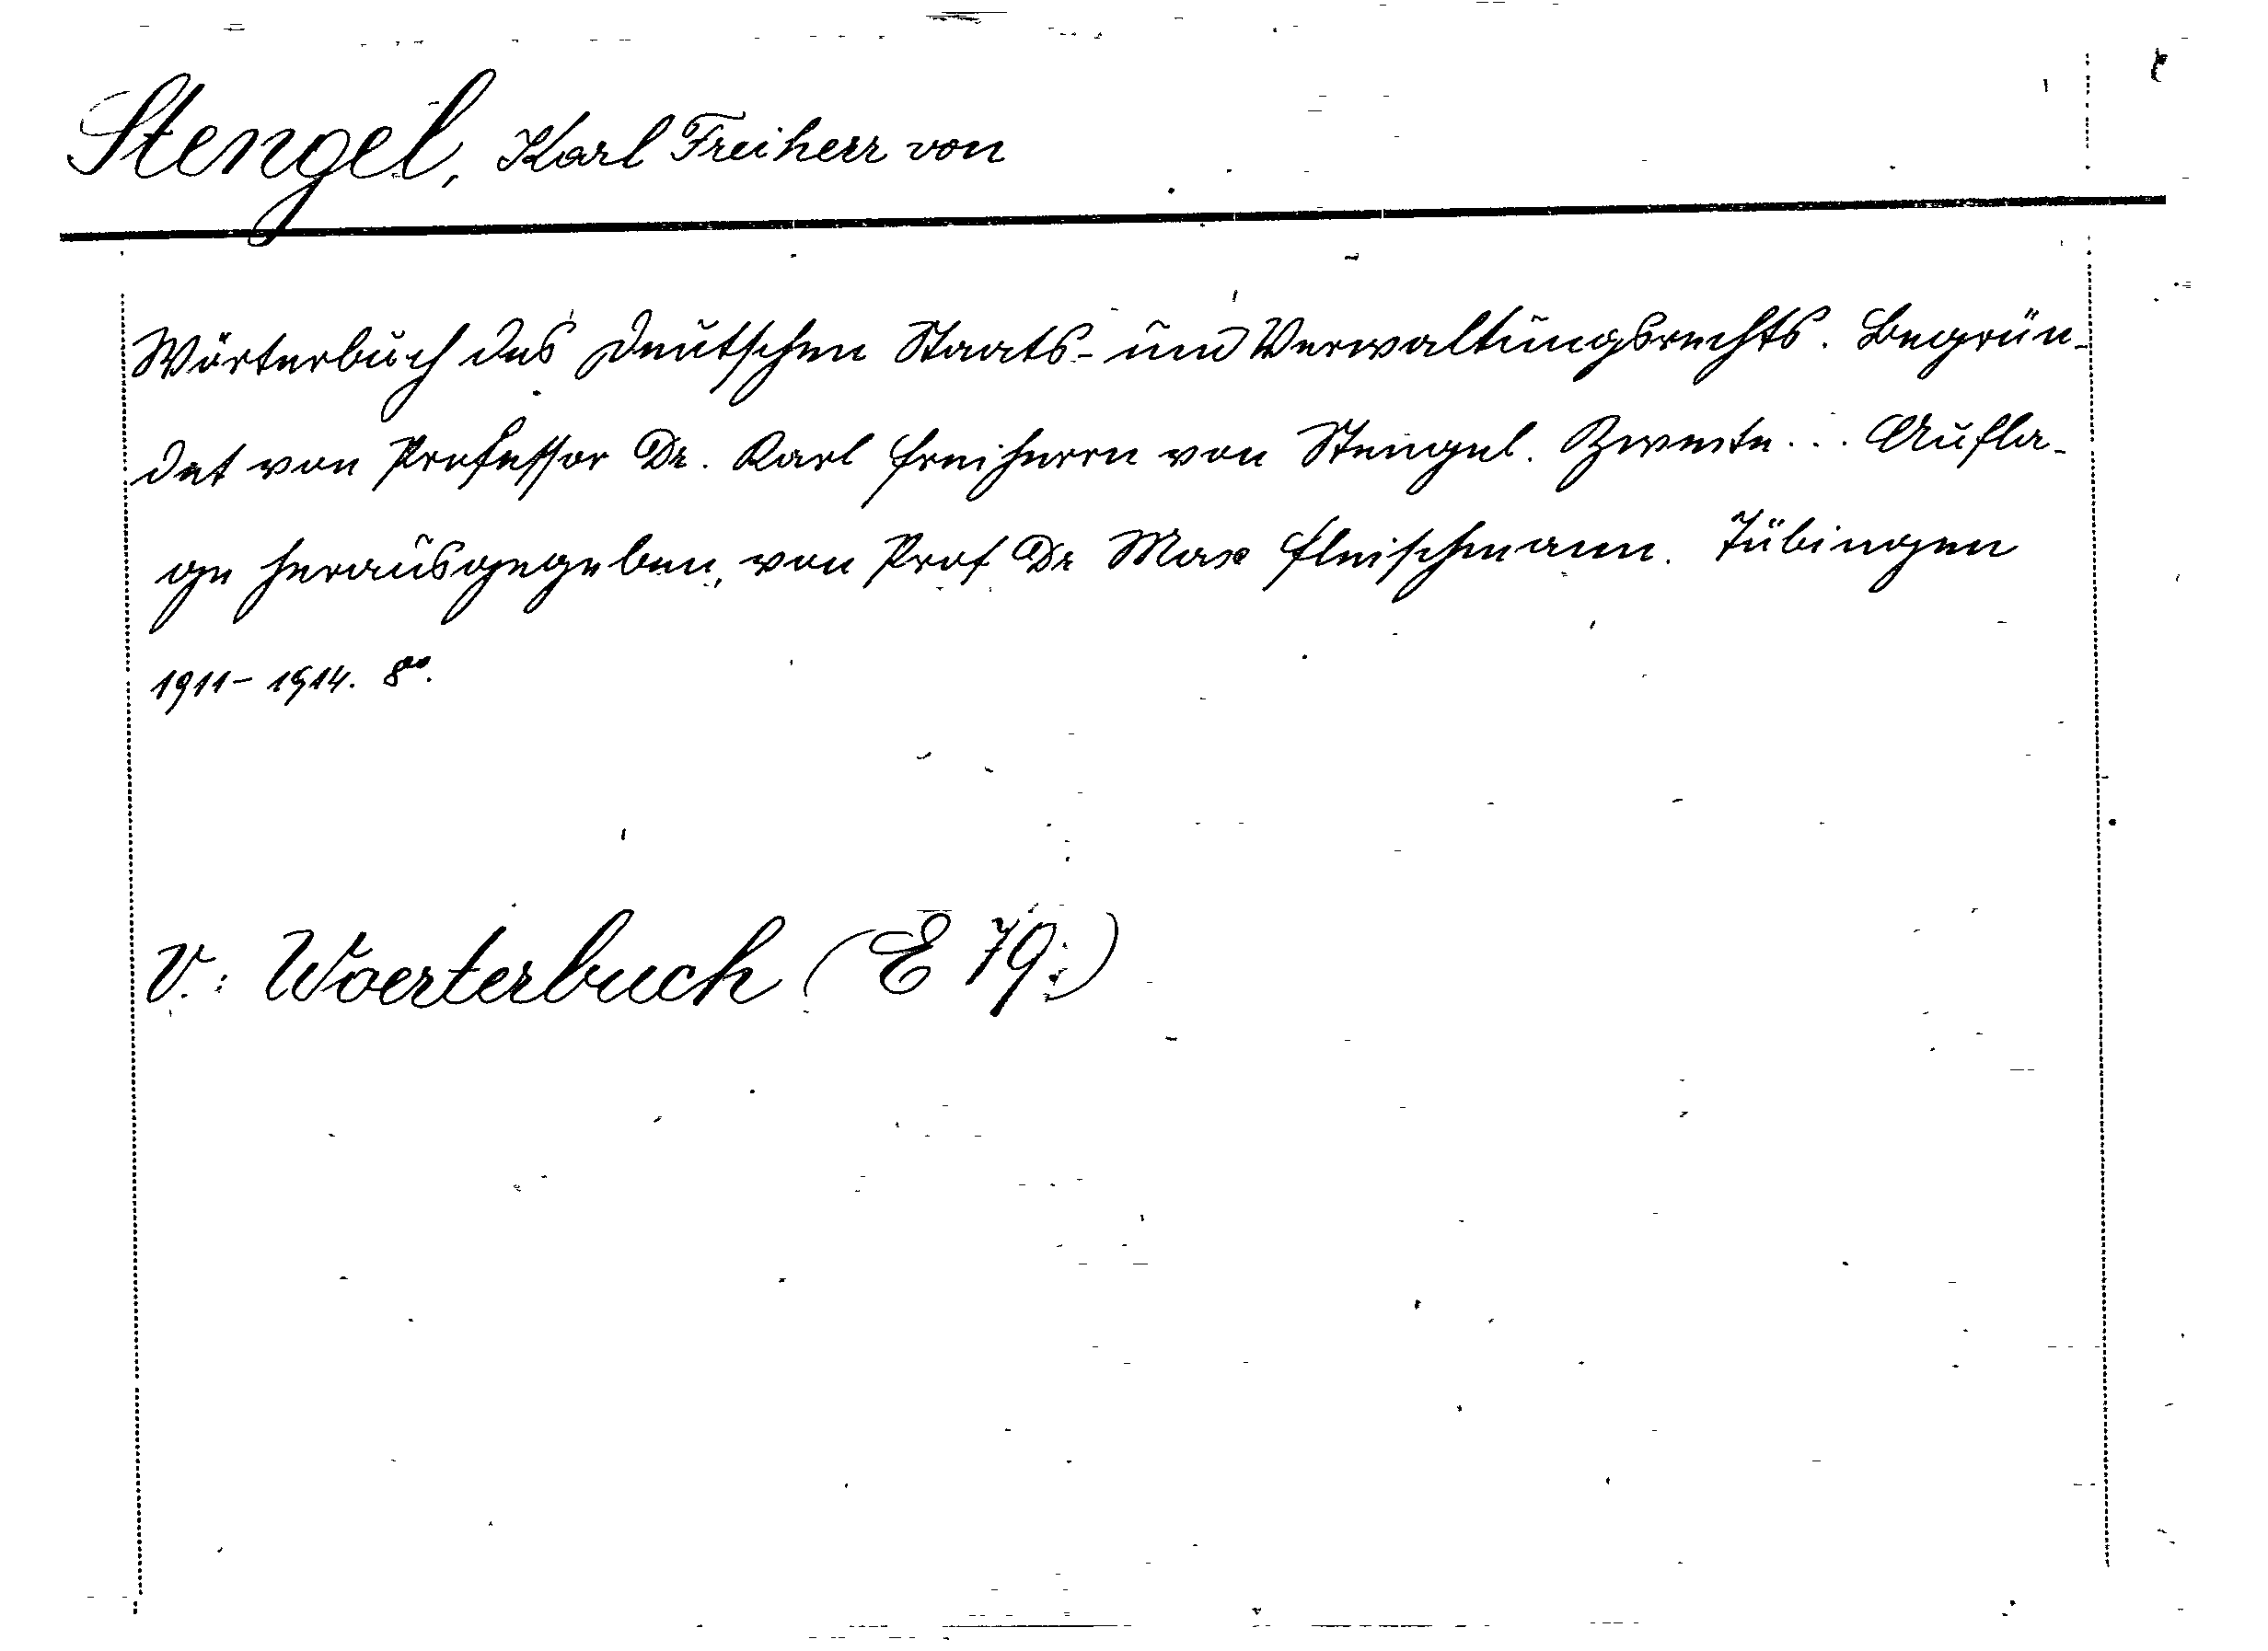 Stengel, Karl Freiherr von
Wörterbuch des Deutschen Staats- und Verwaltungsrechts. Begrün-
det von Professor Dr. Karl Freiherrn von Stengel. Zweite... Aufla-
ge herausgegeben, von Prof. Dr Max Fleischmann. Tübingen
1911-1914. 8°°.
V.: Woerterbuch (E 79:)